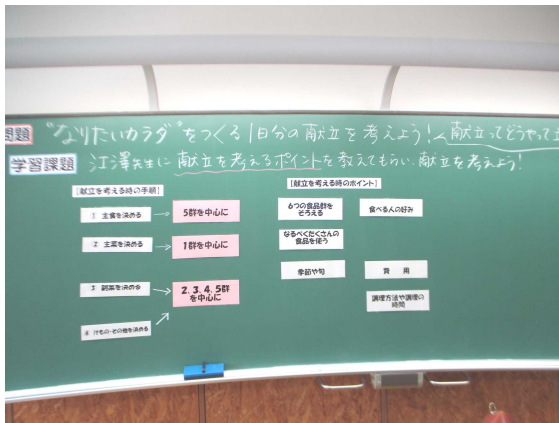 問題 "なりたいカラダ"をつくる1日分の献立を考えよう!<献立ってどうやって
学習課題 江澤先生に献立を考えるポイントを教えてもらい、献立を考えよう!
[献立を考える時の手順]
① 主食を決める → 5群を中心に
② 主菜を決める → 1群を中心に
③ 副菜を決める → 2.3.4.5群
を中心に
④ 汁もの・その他を決める
[献立を考える時のポイント]
6つの食品群を
そろえる
食べる人の好み
なるべくたくさんの
食品を使う
季節や旬
費 用
調理方法や調理の
時間